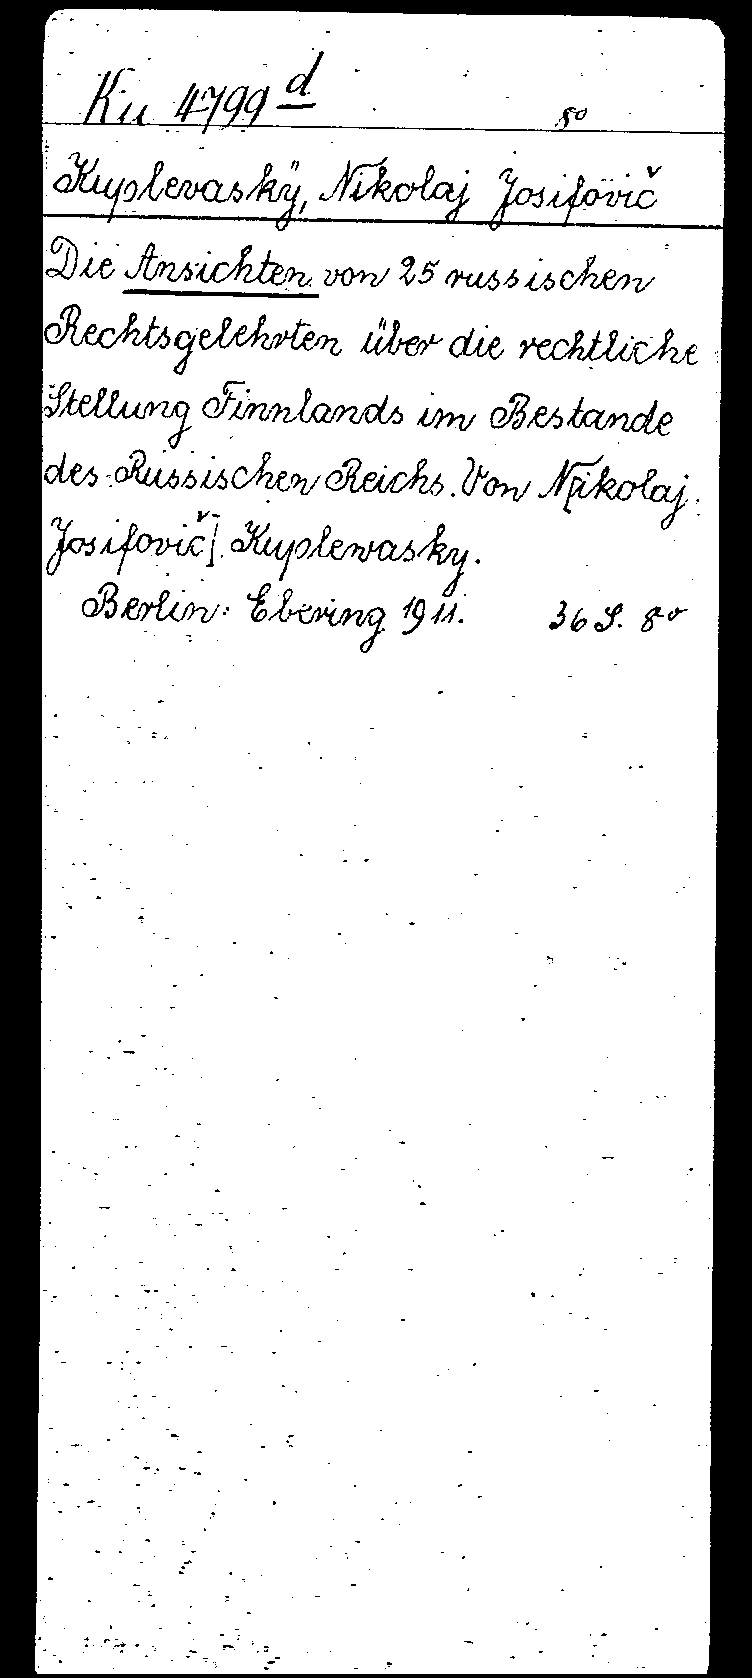 Ku 4799 d 8°
Kuplevaskÿ, Nikolaj Josifovič
Die Ansichten von 25 russischen
Rechtsgelehrten über die rechtliche
Stellung Finnlands im Bestande
des Russischen Reichs. Von N[ikolaj
Josifovič]. Kuplewasky.
Berlin: Ebering 1911. 36 S. 8°